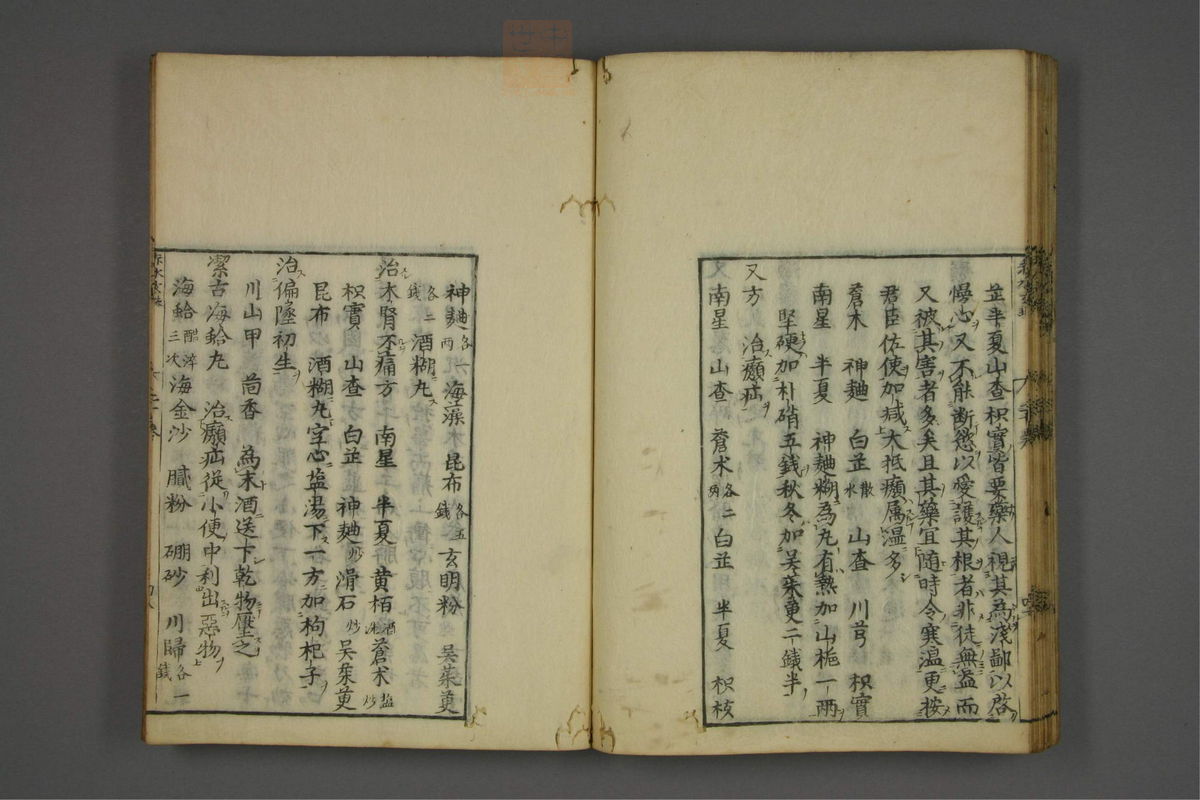 芷半夏山查枳實皆要藥人視其為淺鄙以啓
慢心又不能断慾以愛護其根者非徒無益而
又被其害者多矣且其藥宜随時令寒温更按
君臣佐使加减大抵癩属温多
蒼木 神麯 白芷水散 山查 川芎 枳實
南星 半夏 神麯糊為丸有熱加山梔一兩
堅硬加朴硝五錢秋冬加吴茱萸二錢半
又方 治癩疝
南星 山查 蒼术各二兩 白芷 半夏 枳核
神麯各一兩 海藻 昆布各五錢 玄明粉 吴茱萸
各二錢 酒糊丸
治木腎不痛方 南星 半夏 黄栢酒洗 蒼术盐炒
枳實 山查 白芷 神麯炒 滑石炒 吴茱萸
昆布 酒糊丸空心盐湯下一方加枸杞子
治偏墜初生
川山甲 茴香 為末酒送下乾物壓之
潔古海蛤丸 治癩疝從小便中利出惡物
海蛤醋淬三次 海金沙 膩粉 硼砂 川歸各一錢